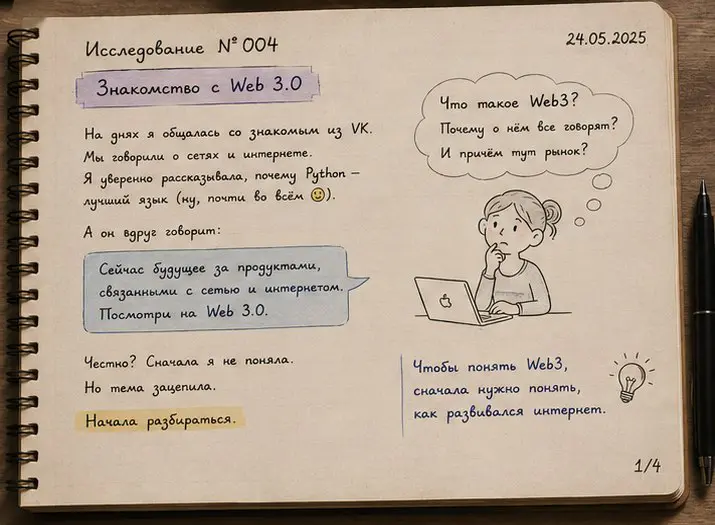 Исследование № 004
24.05.2025
Знакомство с Web 3.0
На днях я общалась со знакомым из VK.
Мы говорили о сетях и интернете.
Я уверенно рассказывала, почему Python –
лучший язык (ну, почти во всём 🙂).
А он вдруг говорит:
Сейчас будущее за продуктами,
связанными с сетью и интернетом.
Посмотри на Web 3.0.
Честно? Сначала я не поняла.
Но тема зацепила.
Начала разбираться.
Что такое Web3?
Почему о нём все говорят?
И причём тут рынок?
Чтобы понять Web3,
сначала нужно понять,
как развивался интернет.
1/4